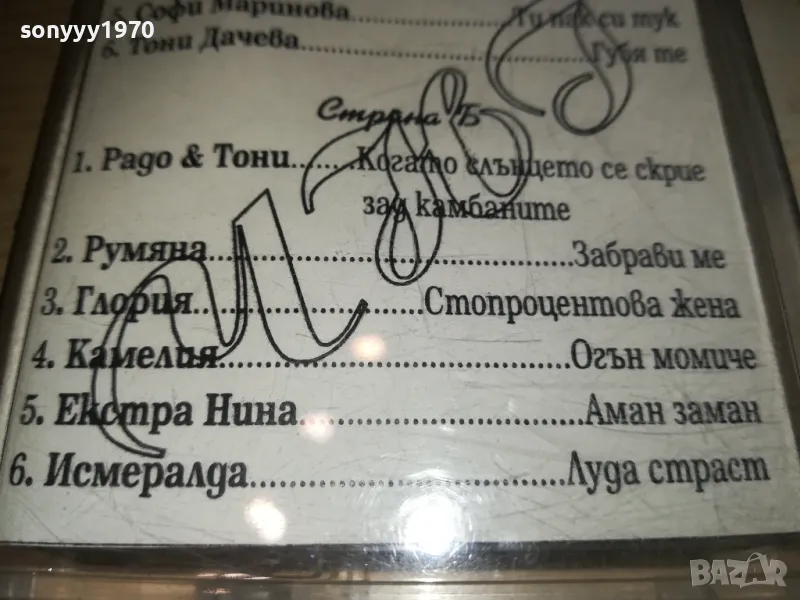 sonyyy1970
5. Софи Маринова..........Ти пак си тук
6. Тони Дачева..........Губя те
Страна Б
1. Радо & Тони.......Когато слънцето се скрие
зад камбаните
2. Румяна..........Забрави ме
3. Глория..........Стопроцентова жена
4. Камелия..........Огън момиче
5. Екстра Нина..........Аман заман
6. Исмералда..........Луда страст
BAZAR